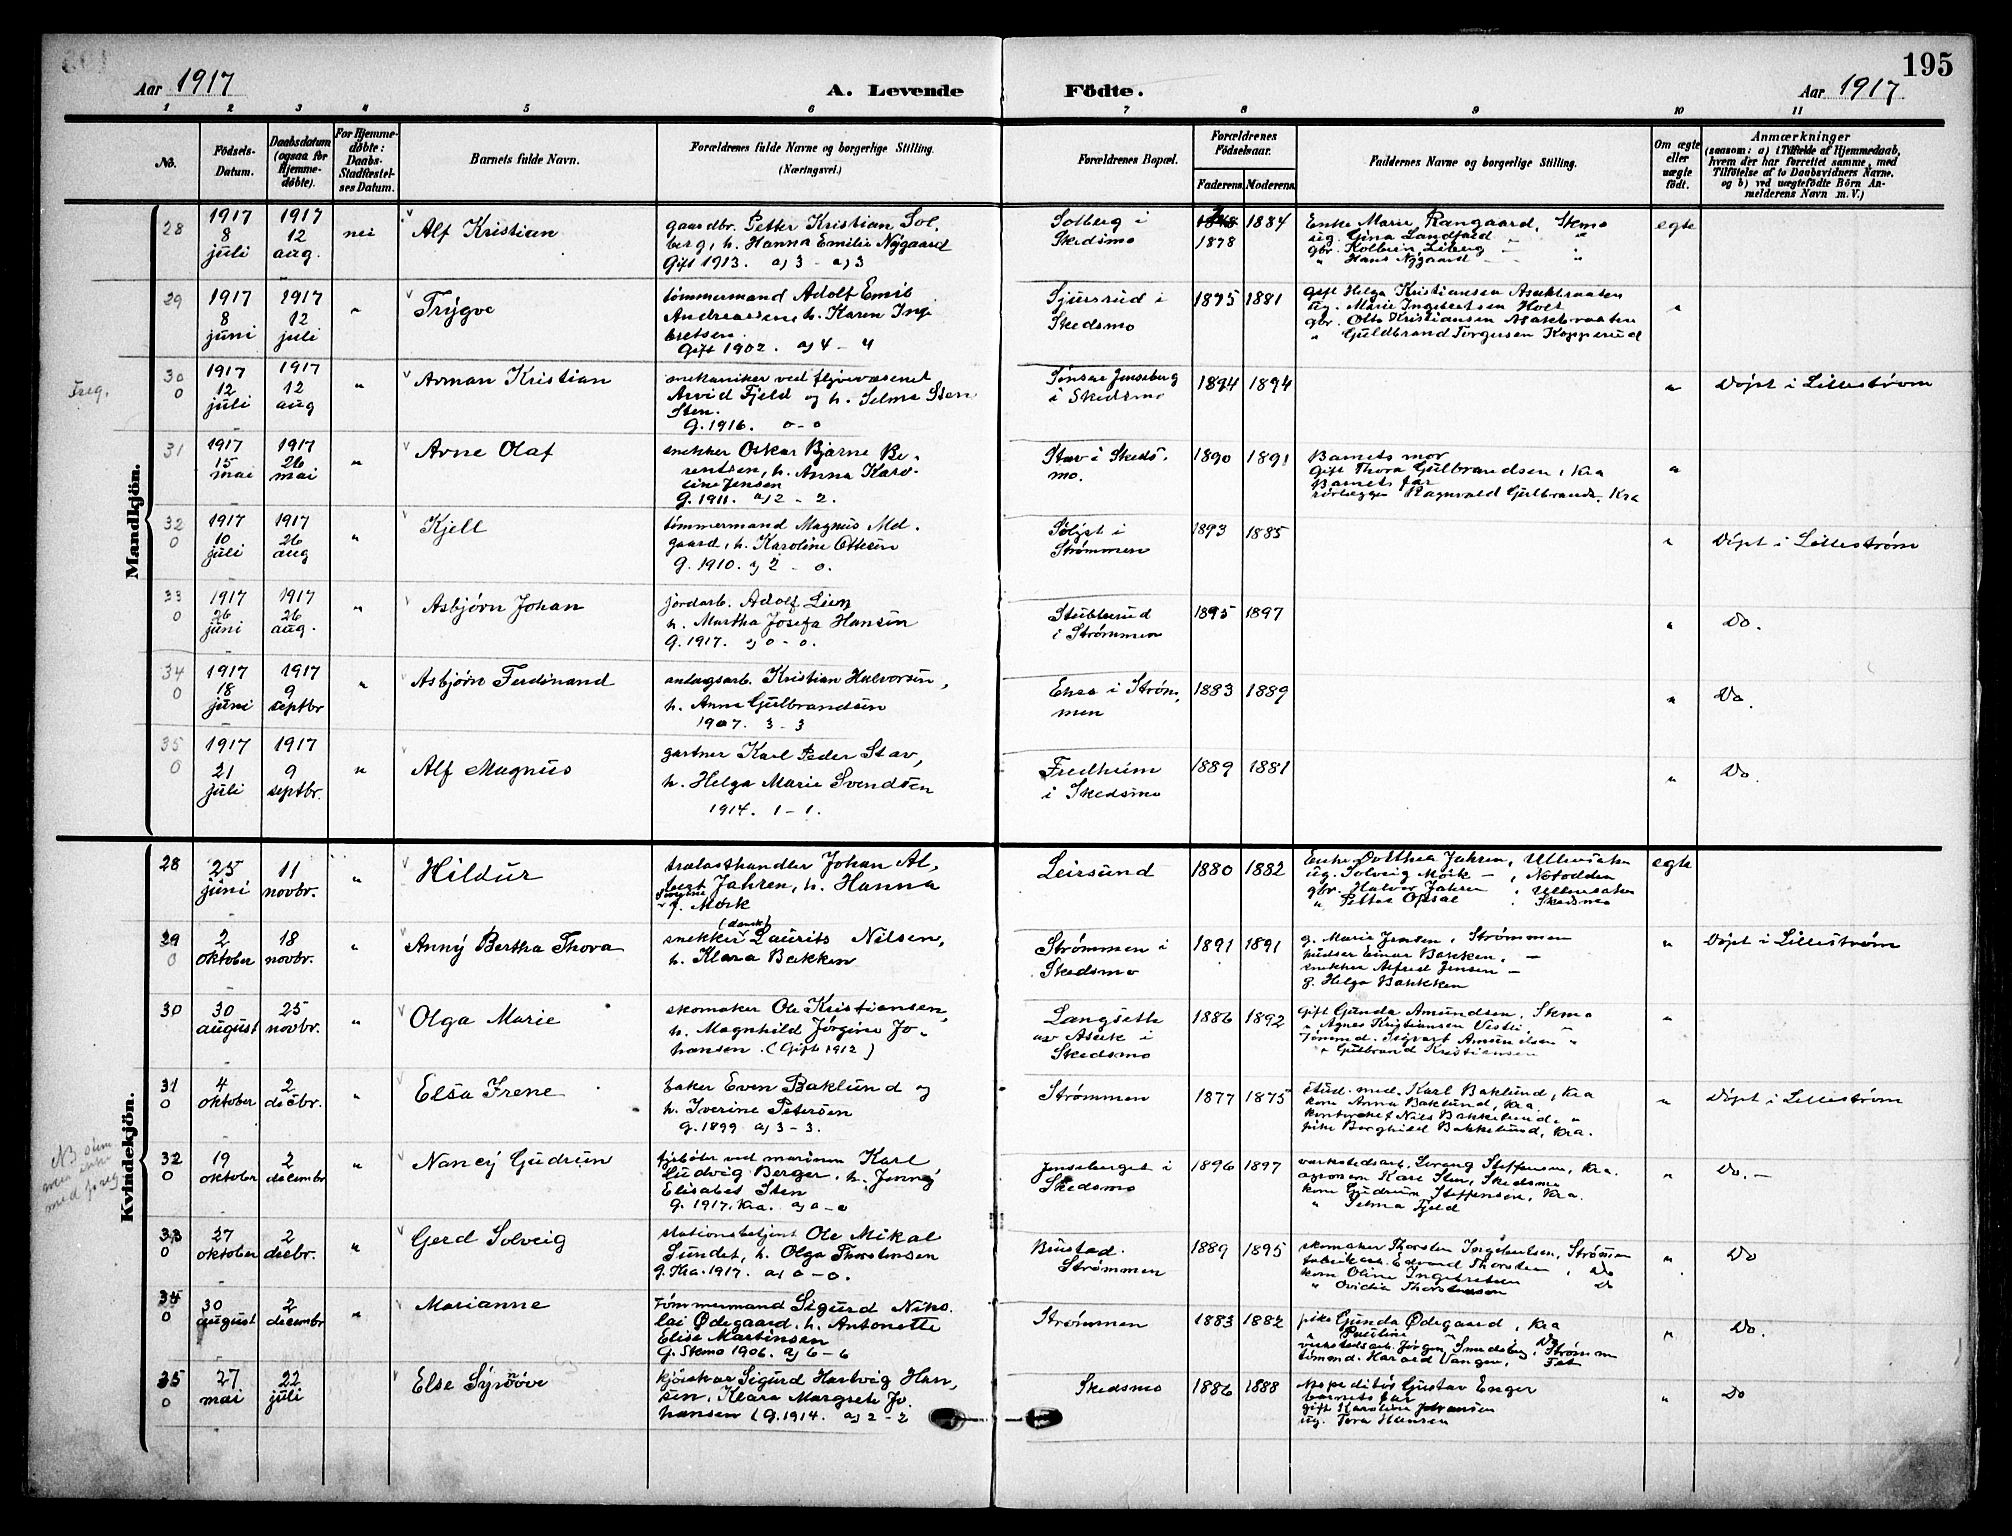 195
Aar 1917
A. Levende
Födte.
Aar 1917
1 2 3 4 5 6 7 8 9 10 11
No.
Födsels-
Datum.
Daabsdatum
(ogsaa for
Hjemme-
döbte).
For Hjemme-
döbte:
Daabs-
Stadfæstel-
ses Datum.
Barnets fulde Navn.
Forældrenes fulde Navne og borgerlige Stilling.
(Næringsvei.)
Forældrenes Bopæl.
Forældrenes
Födselsaar.
Faderens. Moderens.
Faddernes Navne og borgerlige Stilling.
Om ægte
eller
uægte
födt.
Anmærkninger
(saasom: a) i Tilfælde af Hjemmedaab,
hvem der har forrettet samme, med
Tilföielse af to Daabsvidners Navne,
og b) ved uægtefödte Börn An-
melderens Navn m. V.)
Mandkjön.
28
1917
8
juli
1917
12
aug.
nei
Alf Kristian
gaardbr. Petter Kristian Sol
berg, h. Hanna Emilie Nygaard
Gift 1913. a) 3 - a) 3
Solberg i
Skedsmo
1878
1884
Enke Marie Rangaard, Skmo
ug. Gina
gbr.
" Hans Nygaard - "
egte
29
1917
8
juni
1917
12
juli
"
Trygve
tømmermand Adolf Emil
Andreassen h. Karen Ing
bretsen.
Gift 1902. a) 4 - 4
Sjursrud i
Skedsmo
1875
1881
gift Helga Kristiansen
ug. Marie Ingebertsen Holt
gbr. Otto Kristiansen
" Guldbrand Torgersen Kopperud
"
Freg.
30
0
1917
12
juli
1917
12
aug
"
Arman Kristian
mekaniker ved flyvevæsenet
Arvid Fjeld og h. Selma Sten
Sten.
G. 1916. 0-0
Jenseberg
i Skedsmo
1894
1894
"
Døpt i Lillestrøm
31
1917
15
mai
1917
26
mai
"
Arne Olaf
snekker Oskar Bjarne Be-
rentsen, h. Anna Karo-
line Jensen
G. 1911. a) 2 - 2.
Stav i Skeds-
mo.
1890
1891
Barnets mor
gift Thora Gulbrandsen, Kra
Barnets far
rørlegger Ragnvald Gulbrands. Kra
"
32
0
1917
10
juli
1917
26
aug
"
Kjell
tømmermand Magnus Md.
gaard, h. Karoline Ottesen
G. 1910. a) 2 - 0.
Sølyst i
Strømmen
1893
1885
"
Døpt i Lillestrøm
33
0
1917
26
juni
1917
26
aug.
"
Asbjørn Johan
jordarb. Adolf Lien
h. Martha Josefa Hansen
G. 1917. a) 0 - 0.
Stubberud
i Strømmen
1895
1897
"
Do.
34
0
1917
18
juni
1917
9
septbr
"
Asbjørn Ferdinand
anlægsarb. Kristian Halvorsen,
h. Anna Gulbrandsen
1907. 3 - 3
i Strøm
men
1883
1889
"
Do.
35
0
1917
21
juli
1917
9
septbr.
"
Alf Magnus
gartner Karl Peder Stav,
h. Helga Marie Svendsen
1914. 1 - 1.
Fredheim
i Skedsmo
1889
1881
"
Do.
Kvindekjön.
28
25
juni
11
novbr.
"
Hildur
trælasthandler Johan Al-
bert Jahren, h. Hanna
f. Mørk
Leirsund
1880
1882
Enke Dorthea Jahren, Ullensaker
ug. Solveig Mørk - , Notodden
gbr. Halvor Jahren , Ullensaker
" Petter Opsal , Skedsmo
egte
29
0
2
oktober
18
novbr.
"
Anny Bertha Thora
(dansk)
snekker Laurits Nilsen,
h. Klara Bakken
Strømmen i
Skedsmo
1891
1891
g. Marie Jensen, Strømmen
pudser Einar Bakken, -
snekker Alfred Jensen -
g. Helga Bakken
"
Døpt i Lillestrøm
30
30
august
25
novbr.
"
Olga Marie
skomaker Ole Kristiansen,
h. Magnhild Jørgine Jo-
hansen. (Gift 1912)
Langseth
av Asak i
Skedsmo
1886
1892
Gift Gunda Amundsen, Skmo
" Agnes Kristiansen Vestli, "
Tømmd. Sigvart Amundsen "
" Gulbrand Kristiansen
"
31
0
4
oktober
2
decbr.
"
Elsa Irene
baker Even Baklund og
h. Iverine Petersen
G. 1899 a) 3 - 3.
Strømmen
1877
1875
stud. med. Karl Baklund, Kra
kom Anna Baklund, Kra.
kontorchef Nils Bakkelund, "
pike Borghild Bakkelund, Kra.
"
Døpt i Lillestrøm
NB
32
0
19
oktober
2
decembr
"
Nancy Gudrun
fyrbøter ved marinen Karl
Ludvig Berger, h. Jenny
Elisabet Sten
G. 1917. Kra. a) 0 - 0
Jenseberget i
Skedsmo
1896
1897
verkstedsarb. Steffensen, Kra.
agronom Kare Sten, Skedsmo
kom Gudrun Steffensen, Kra.
" Selma Fjeld
"
Do. -
33
0
27
oktober
2
decbr.
"
Gerd Solveig
stationsbetjent Ole Mikal
Sundet, h. Olga Thorstensen
g. Kra. 1917. a) 0 - 0.
Bustad.
Strømmen
1889
1895
skomaker Thorsten Ingebretsen, Strømmen
fabrikarb. Edvard Thorstein , Do
kom Oline Ingebretsen Do
" Ovidia Thorstensen
"
Do
34
0
30
august
2
decembr
"
Marianne
Tømmermand Sigurd Niko
lai Ødegaard. h. Antonette
Elise Martinsen
G. Skmo 1906. a) 6 - 6
Strømmen
1883
1882
pike Gunda Ødegaard, Kra
" Pauline " Do
verkstedsarb. Jørgen Smedsby, Strømmen
tømmd. Harald Vangen,
"
Do.
35
0
27
mai
22
juli
Else Synnöve
kjørekar Sigurd Hartvig Han,
sen, Klara Margrete Jo-
hansen (G. 1914. a) 2 - 2
Skedsmo
1886
1888
Ekspeditør Gustav Enger
barnets far
gift Karoline Johansen
ug. Tora Hansen
"
Do